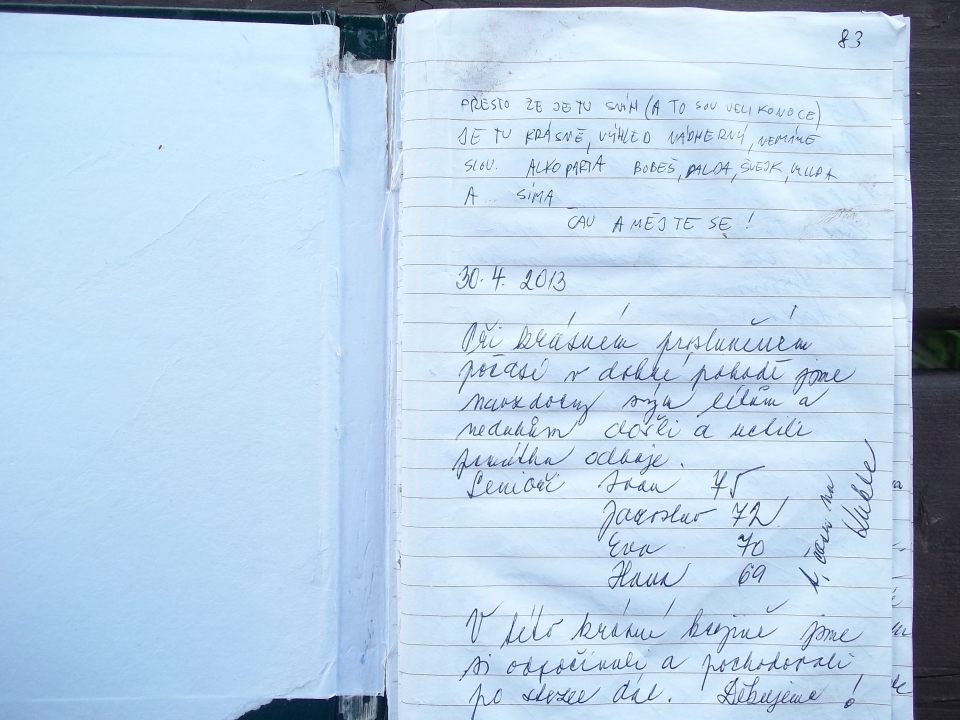 83
PŘESTO ŽE JE TU SNÍH (A TO SOU VELIKONOCE)
JE TU KRÁSNĚ, VÝHLED NÁDHERNÝ, NEMÁME
SLOV. ALKOPARTA BOBEŠ, PALDA, ŠVEJK,
A SÍMA
ČAU A MĚJTE SE!
30.4. 2013
Při krásném prosluněném
počasí v dobré pohodě jsme
navzdory svým létům a
neduhům došli a uctili
památku odboje.
Senioři Ivan 75
Jaroslav 72
Eva 70
Hana 69
na
V této krásné krajině jsme
si odpočinuli a pochodovali
po stezce dál. Děkujeme!